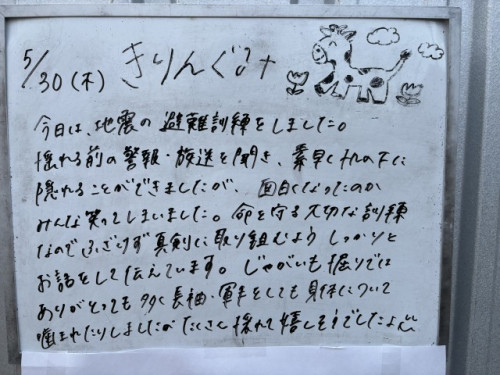 5/30(木) きりんぐみ
今日は、地震の避難訓練をしました。
揺れる前の警報・放送を聞き、素早く机の下に
隠れることができましたが、面白くなったのか
みんな笑ってしまいました。命を守る大切な訓練
なのでふざけず真剣に取り組むようしっかりと
お話をして伝えています。じゃがいも掘りでは
ありがとっても多く長袖・軍手をしても身体について
噛まれたりしましたがたくさん採れて嬉しそうでしたよ